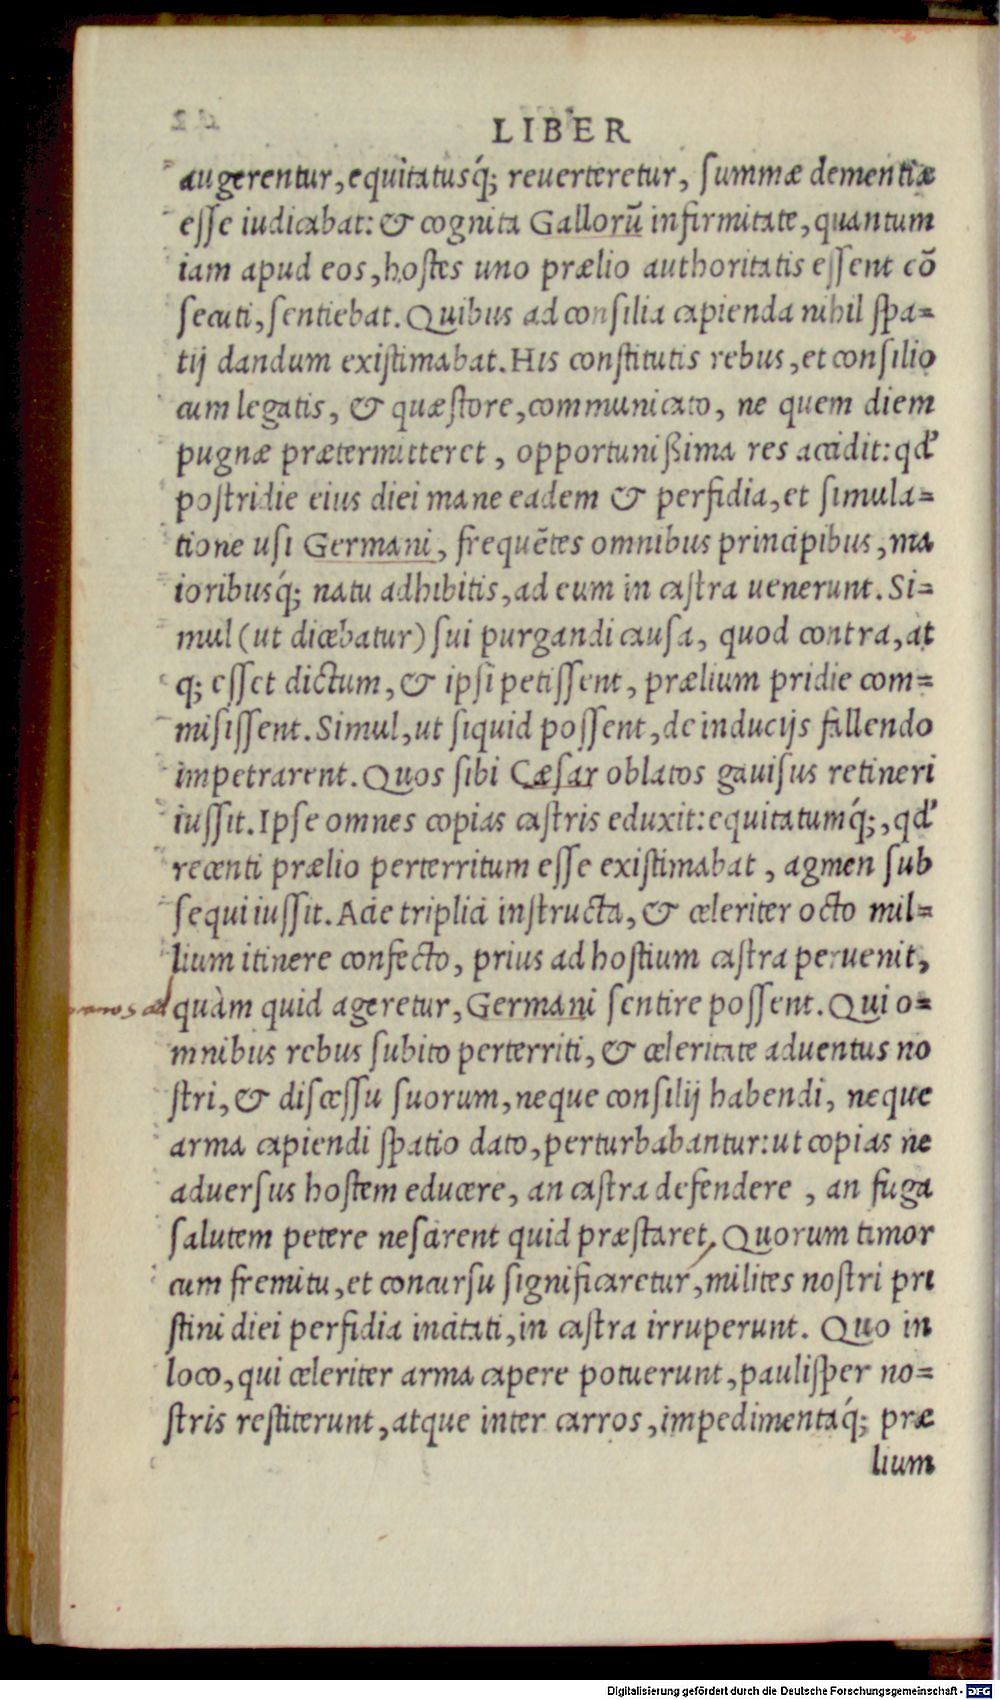 LIBER
augerentur, equitatusq́; reuerteretur, summæ dementiæ
esse iudicabat: & cognita Gallorũ infirmitate, quantum
iam apud eos, hostes uno prælio authoritatis essent cõ
secuti, sentiebat. Quibus ad consilia capienda nihil spa=
tij dandum existimabat. His constitutis rebus, et consilio
cum legatis, & quæstore, communicato, ne quem diem
pugnæ prætermitteret, opportunißima res accidit: qd'
postridie eius diei mane eadem & perfidia, et simula=
tione usi Germani, frequẽtes omnibus principibus, ma
ioribusq́; natu adhibitis, ad eum in castra uenerunt. Si=
mul (ut dicebatur) sui purgandi causa, quod contra, at
q; esset dictum, & ipsi petissent, prælium pridie com=
misissent. Simul, ut siquid possent, de inducijs fallendo
impetrarent. Quos sibi Cæsar oblatos gauisus retineri
iussit. Ipse omnes copias castris eduxit: equitatumq́;, qd'
recenti prælio perterritum esse existimabat, agmen sub
sequi iussit. Acie triplici instructa, & celeriter octo mil=
lium itinere confecto, prius ad hostium castra peruenit,
quàm quid ageretur, Germani sentire possent. Qui o=
mnibus rebus subito perterriti, & celeritate aduentus no
stri, & discessu suorum, neque consilij habendi, neque
arma capiendi spatio dato, perturbabantur: ut copias ne
aduersus hostem educere, an castra defendere, an fuga
salutem petere nescirent quid præstaret. Quorum timor
cum fremitu, et concursu significaretur, milites nostri pri
stini diei perfidia incitati, in castra irruperunt. Quo in
loco, qui celeriter arma capere potuerunt, paulisper no=
stris restiterunt, atque inter carros, impedimentaq́; præ
lium
Digitalisierung gefördert durch die Deutsche Forschungsgemeinschaft - DFG